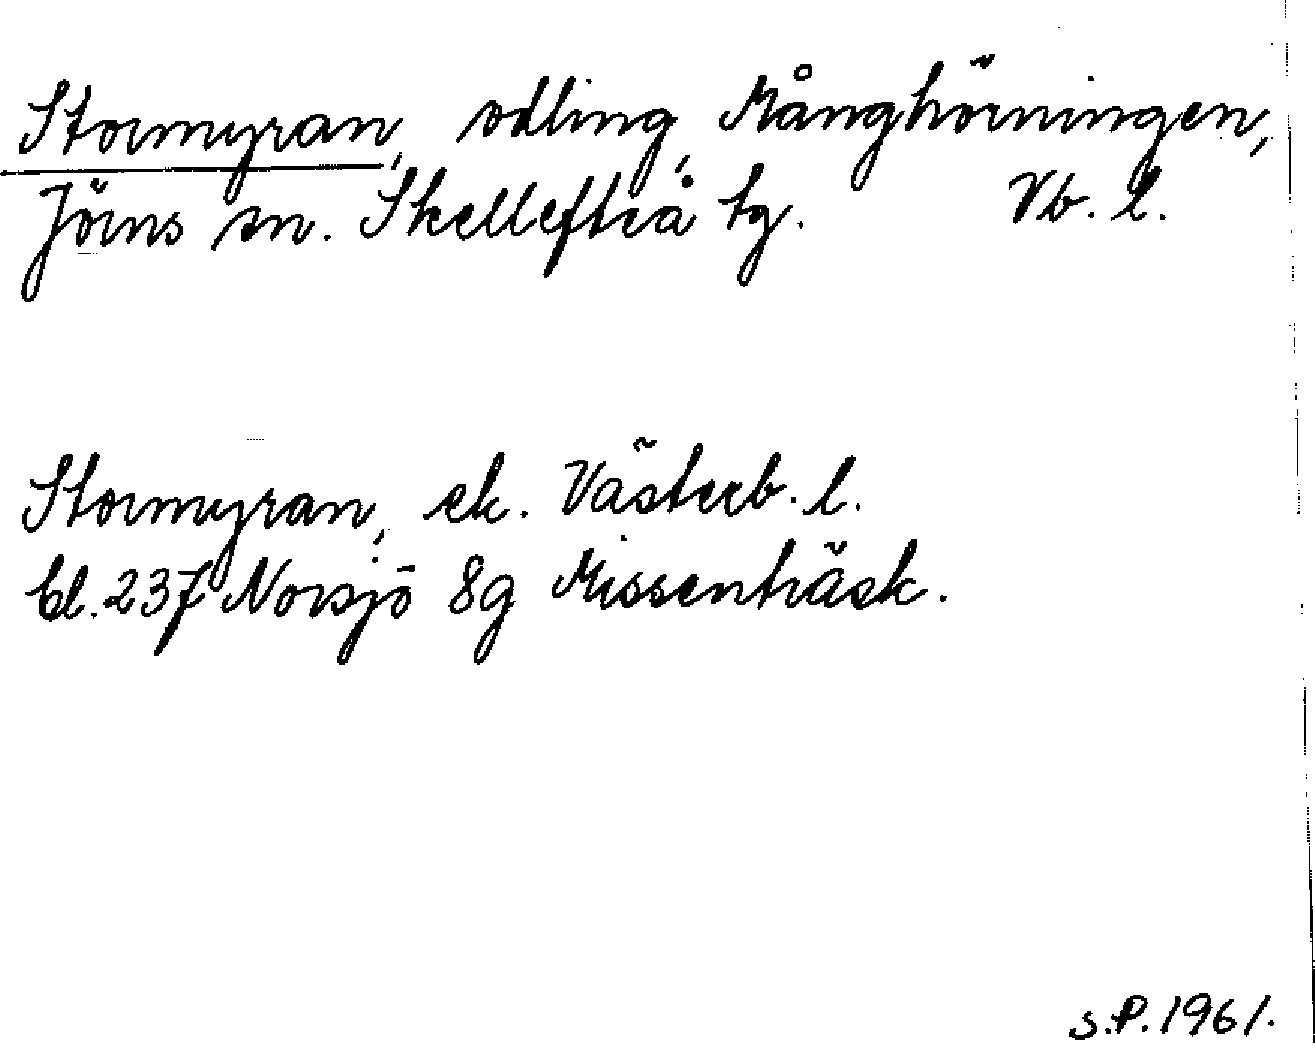 Stormyran, odling, Månghörningen,
Jörns sn. Skellefteå tg. Vb. l.
Stormyran, ek. Västerb. l.
bl. 237 Norsjö 8g Missenträsk.
S.P. 1961.